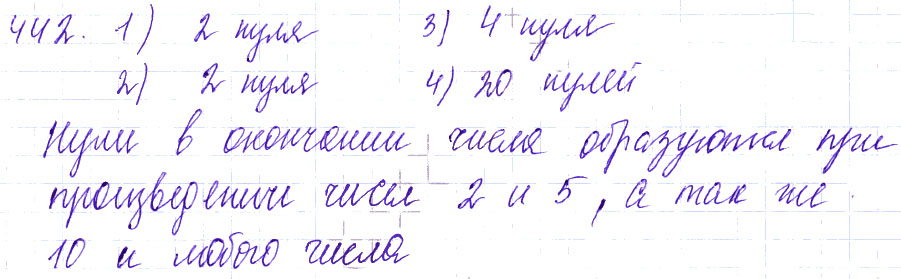 442. 1) 2 нуля 3) 4 нуля
2) 2 нуля 4) 20 нулей
Нули в окончании числа образуются при
произведении чисел 2 и 5, а так же
10 и любого числа